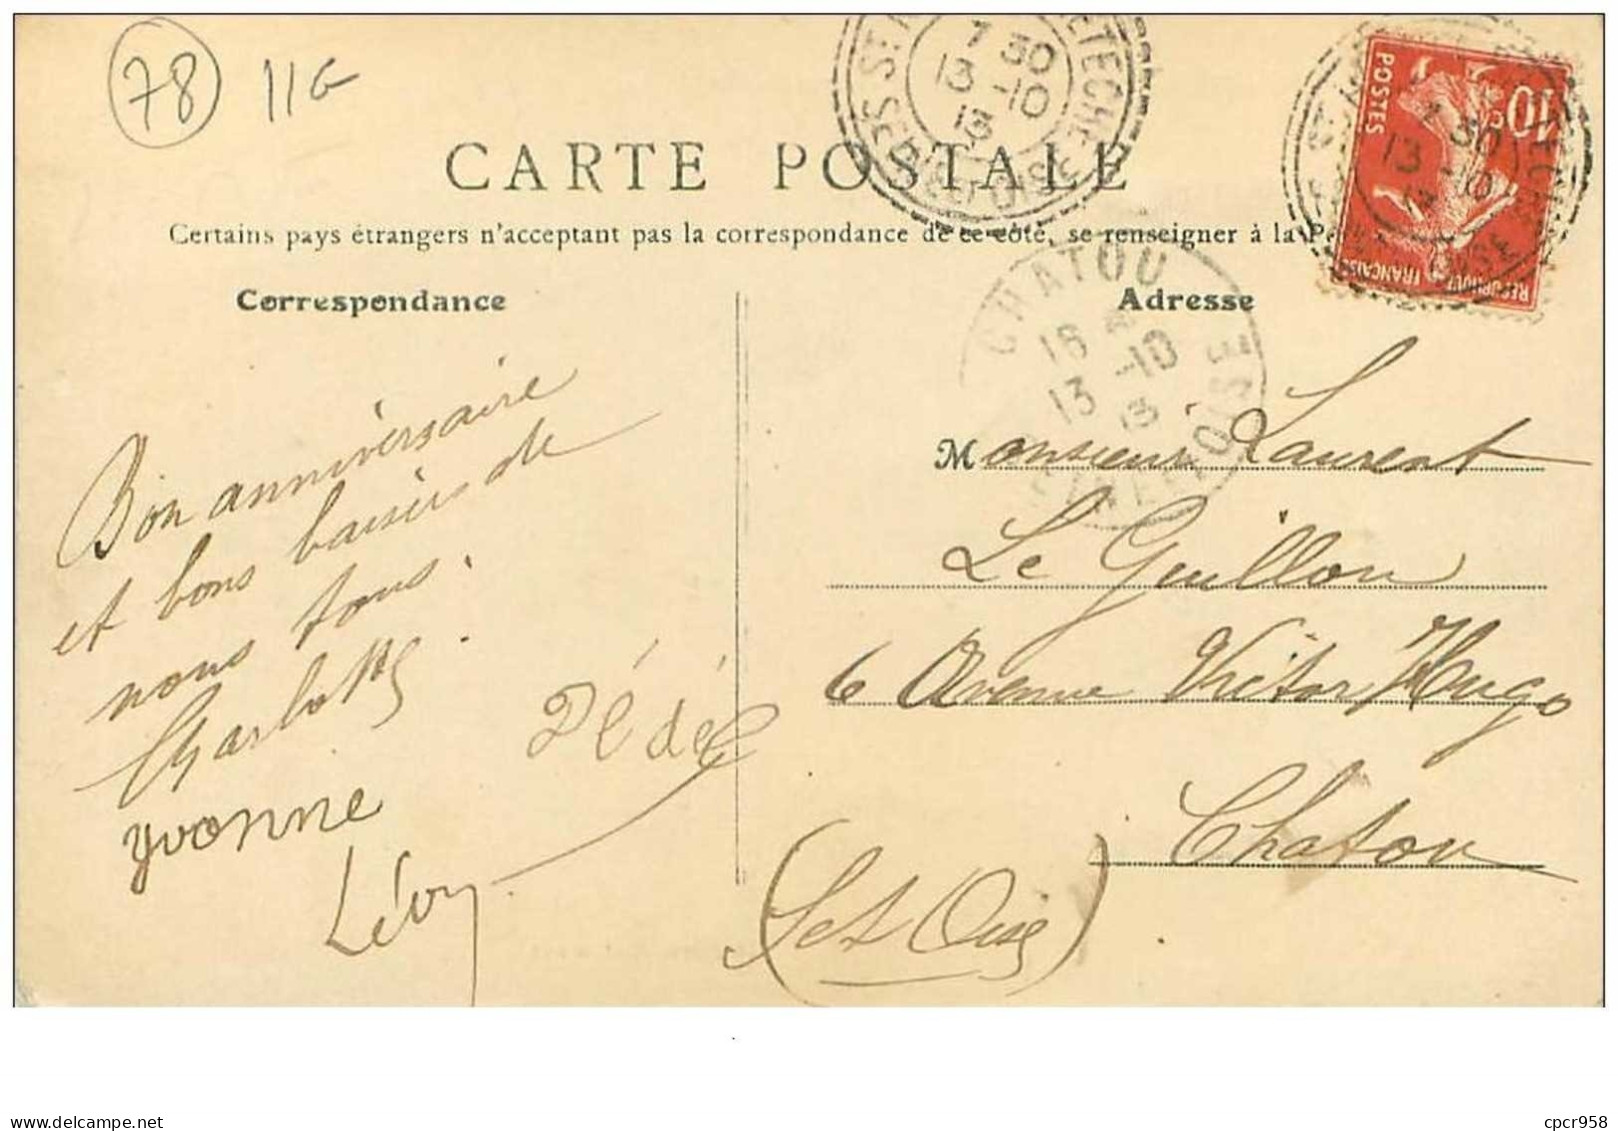 78 11G
CARTE POSTALE
Certains pays étrangers n'acceptent pas la correspondance de ce côté, se renseigner à la
Correspondance
Bon anniversaire
et bons baisers de
nous tous.
Charlotte
Dédé
yvonne
Lévy
Adresse
Monsieur Laurent
Le Guillou
6 Avenue Victor Hugo
Chatou
(S et Oise)
7 30
13 -10
13
10
POSTES
REPUBLIQUE FRANÇAISE
CHATOU
16
13 -10
13
www.delcampe.net
cpcr958